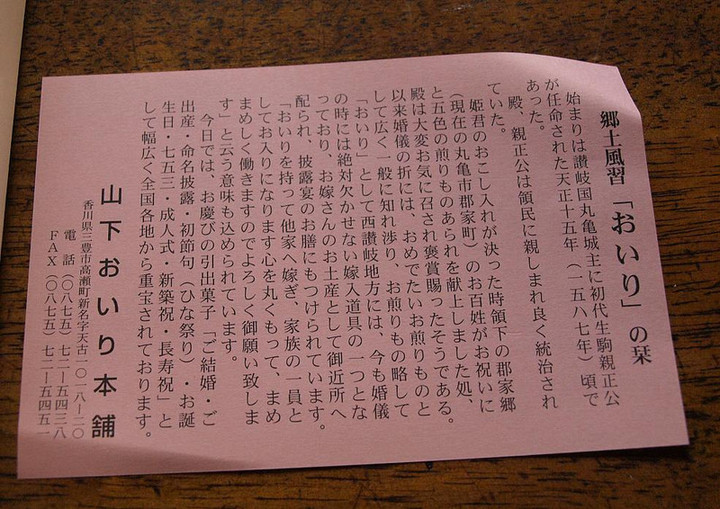 郷土風習「おいり」の栞
始まりは讃岐国丸亀城主に初代生駒親正公
が任命された天正十五年（一五八七年）頃で
あった。
殿、親正公は領民に親しまれ良く統治され
ていた。
姫君のおこし入れが決った時領下の郡家郷
（現在の丸亀市郡家町）のお百姓がお祝いに
と五色の煎りものあられを献上しました処、
殿は大変お気に召され褒賞賜ったそうである。
以来婚儀の折には、おめでたいお煎りものと
して広く一般に知れ渉り、お煎りもの略して
「おいり」として西讃岐地方には、今も婚儀
の時には絶対欠かせない嫁入道具の一つとな
っており、お嫁さんのお土産として御近所へ
配られ、披露宴のお膳にもつけられています。
「おいりを持って他家へ嫁ぎ、家族の一員と
してお入りになります心を丸くもって、まめ
まめしく働きますのでよろしく御願い致しま
す」と云う意味も込められています。
今日では、お慶びの引出菓子「ご結婚・ご
出産・命名披露・初節句（ひな祭り）・お誕
生日・七五三・成人式・新築祝・長寿祝」と
して幅広く全国各地から重宝されております。
山下おいり本舗
香川県三豊市高瀬町新名字天古一〇一八ー二〇
電話（〇八七五）七二ー五四三八
ＦＡＸ（〇八七五）七二ー五四五一